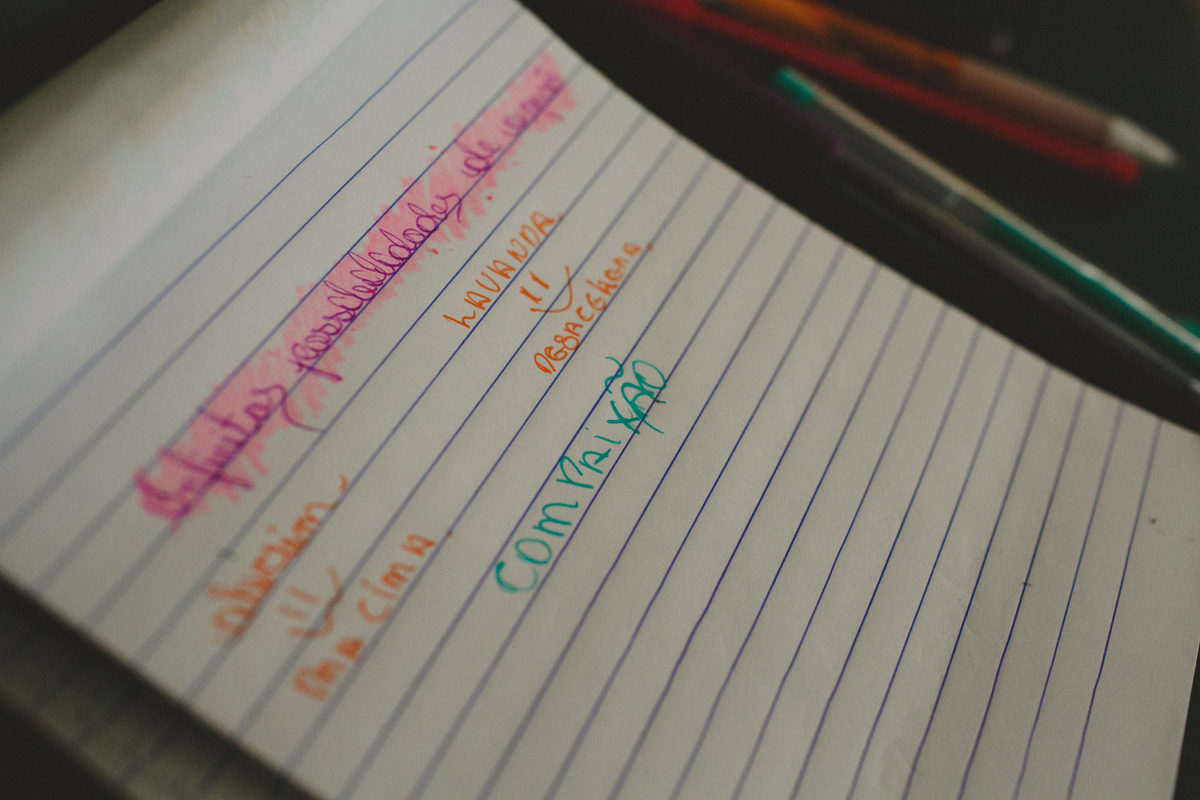 Infinitas possibilidades de
alecrim LAVANDA
ENA CIMA DESACELERA
COMPAIXÃO